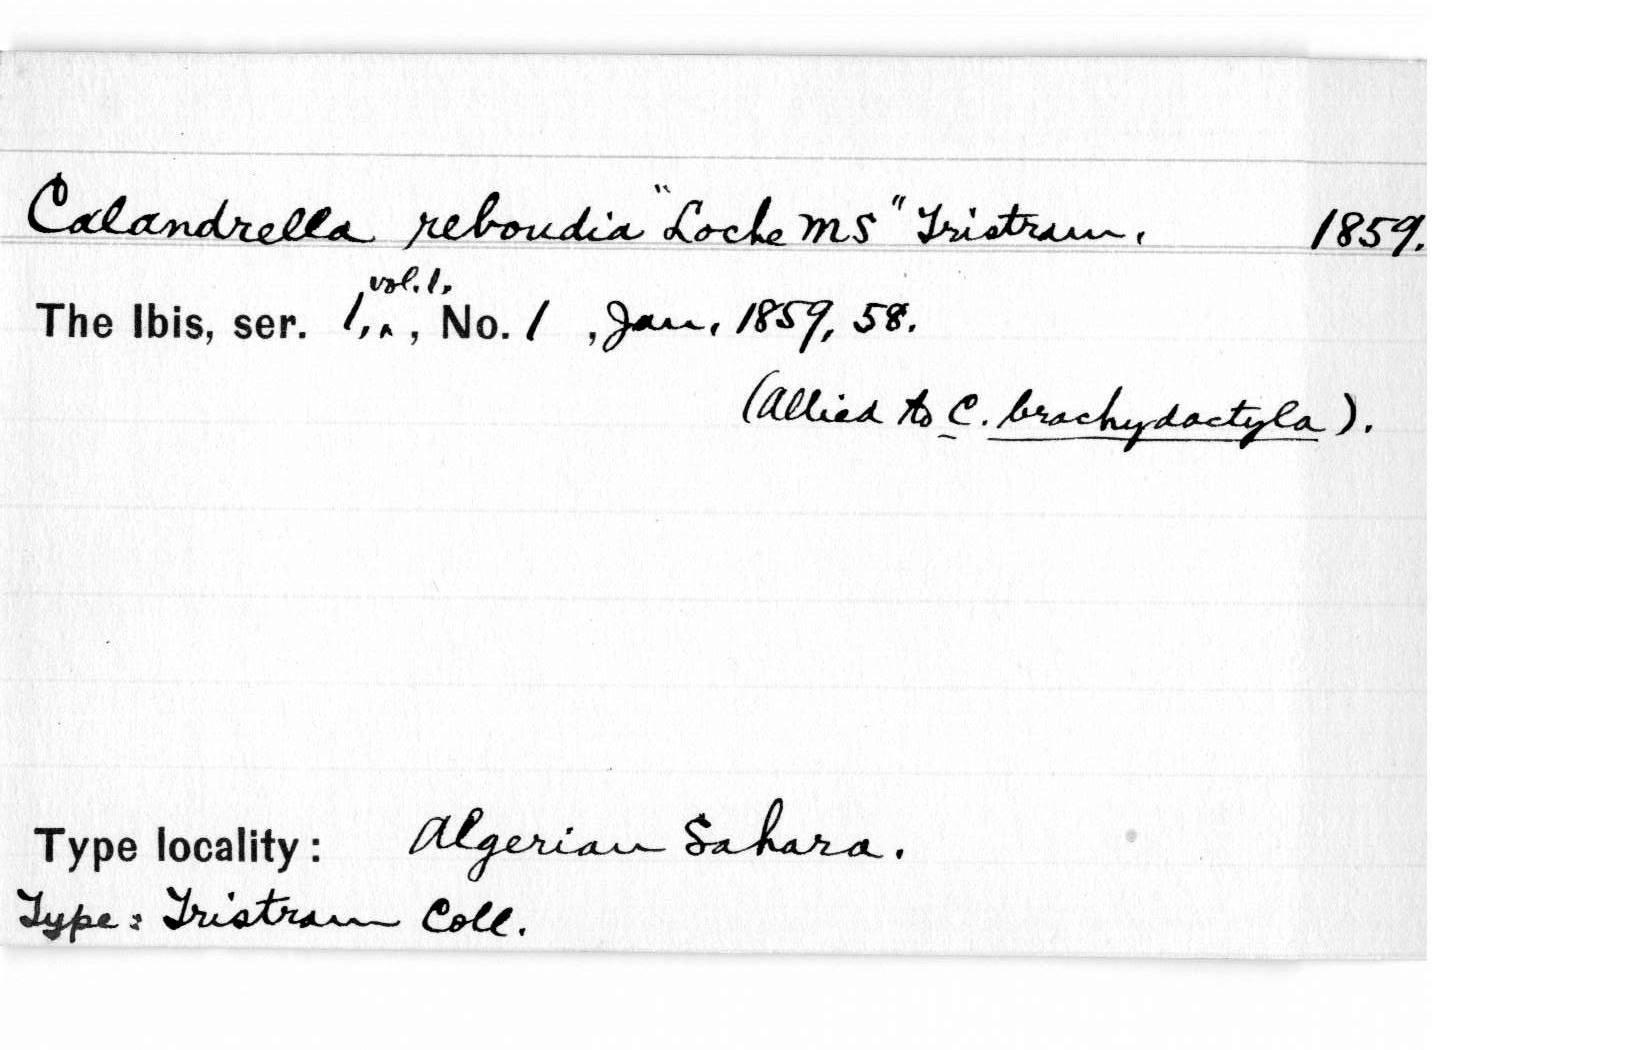 Calandrella reboudia "Loche MS" Tristram, 1859.
The Ibis, ser. 1, vol. 1, , No. 1 , Jan, 1859, 58.
(Allied to C. brachydactyla).
Type locality: Algerian Sahara.
Type: Tristram Coll.